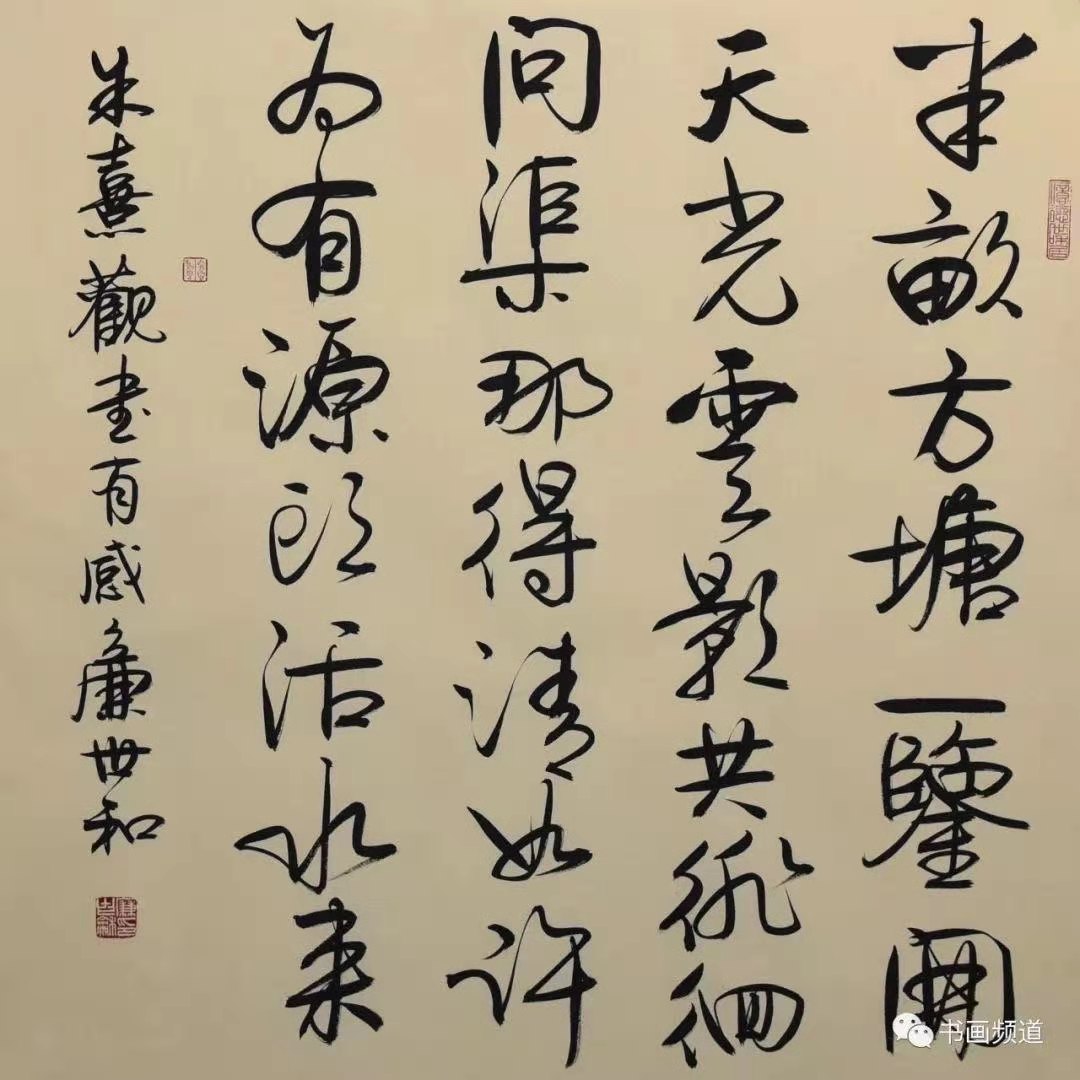 半畝方塘一鑒開
天光雲影共徘徊
問渠那得清如許
为有源头活水来
朱熹觀书有感廉世和
书画频道